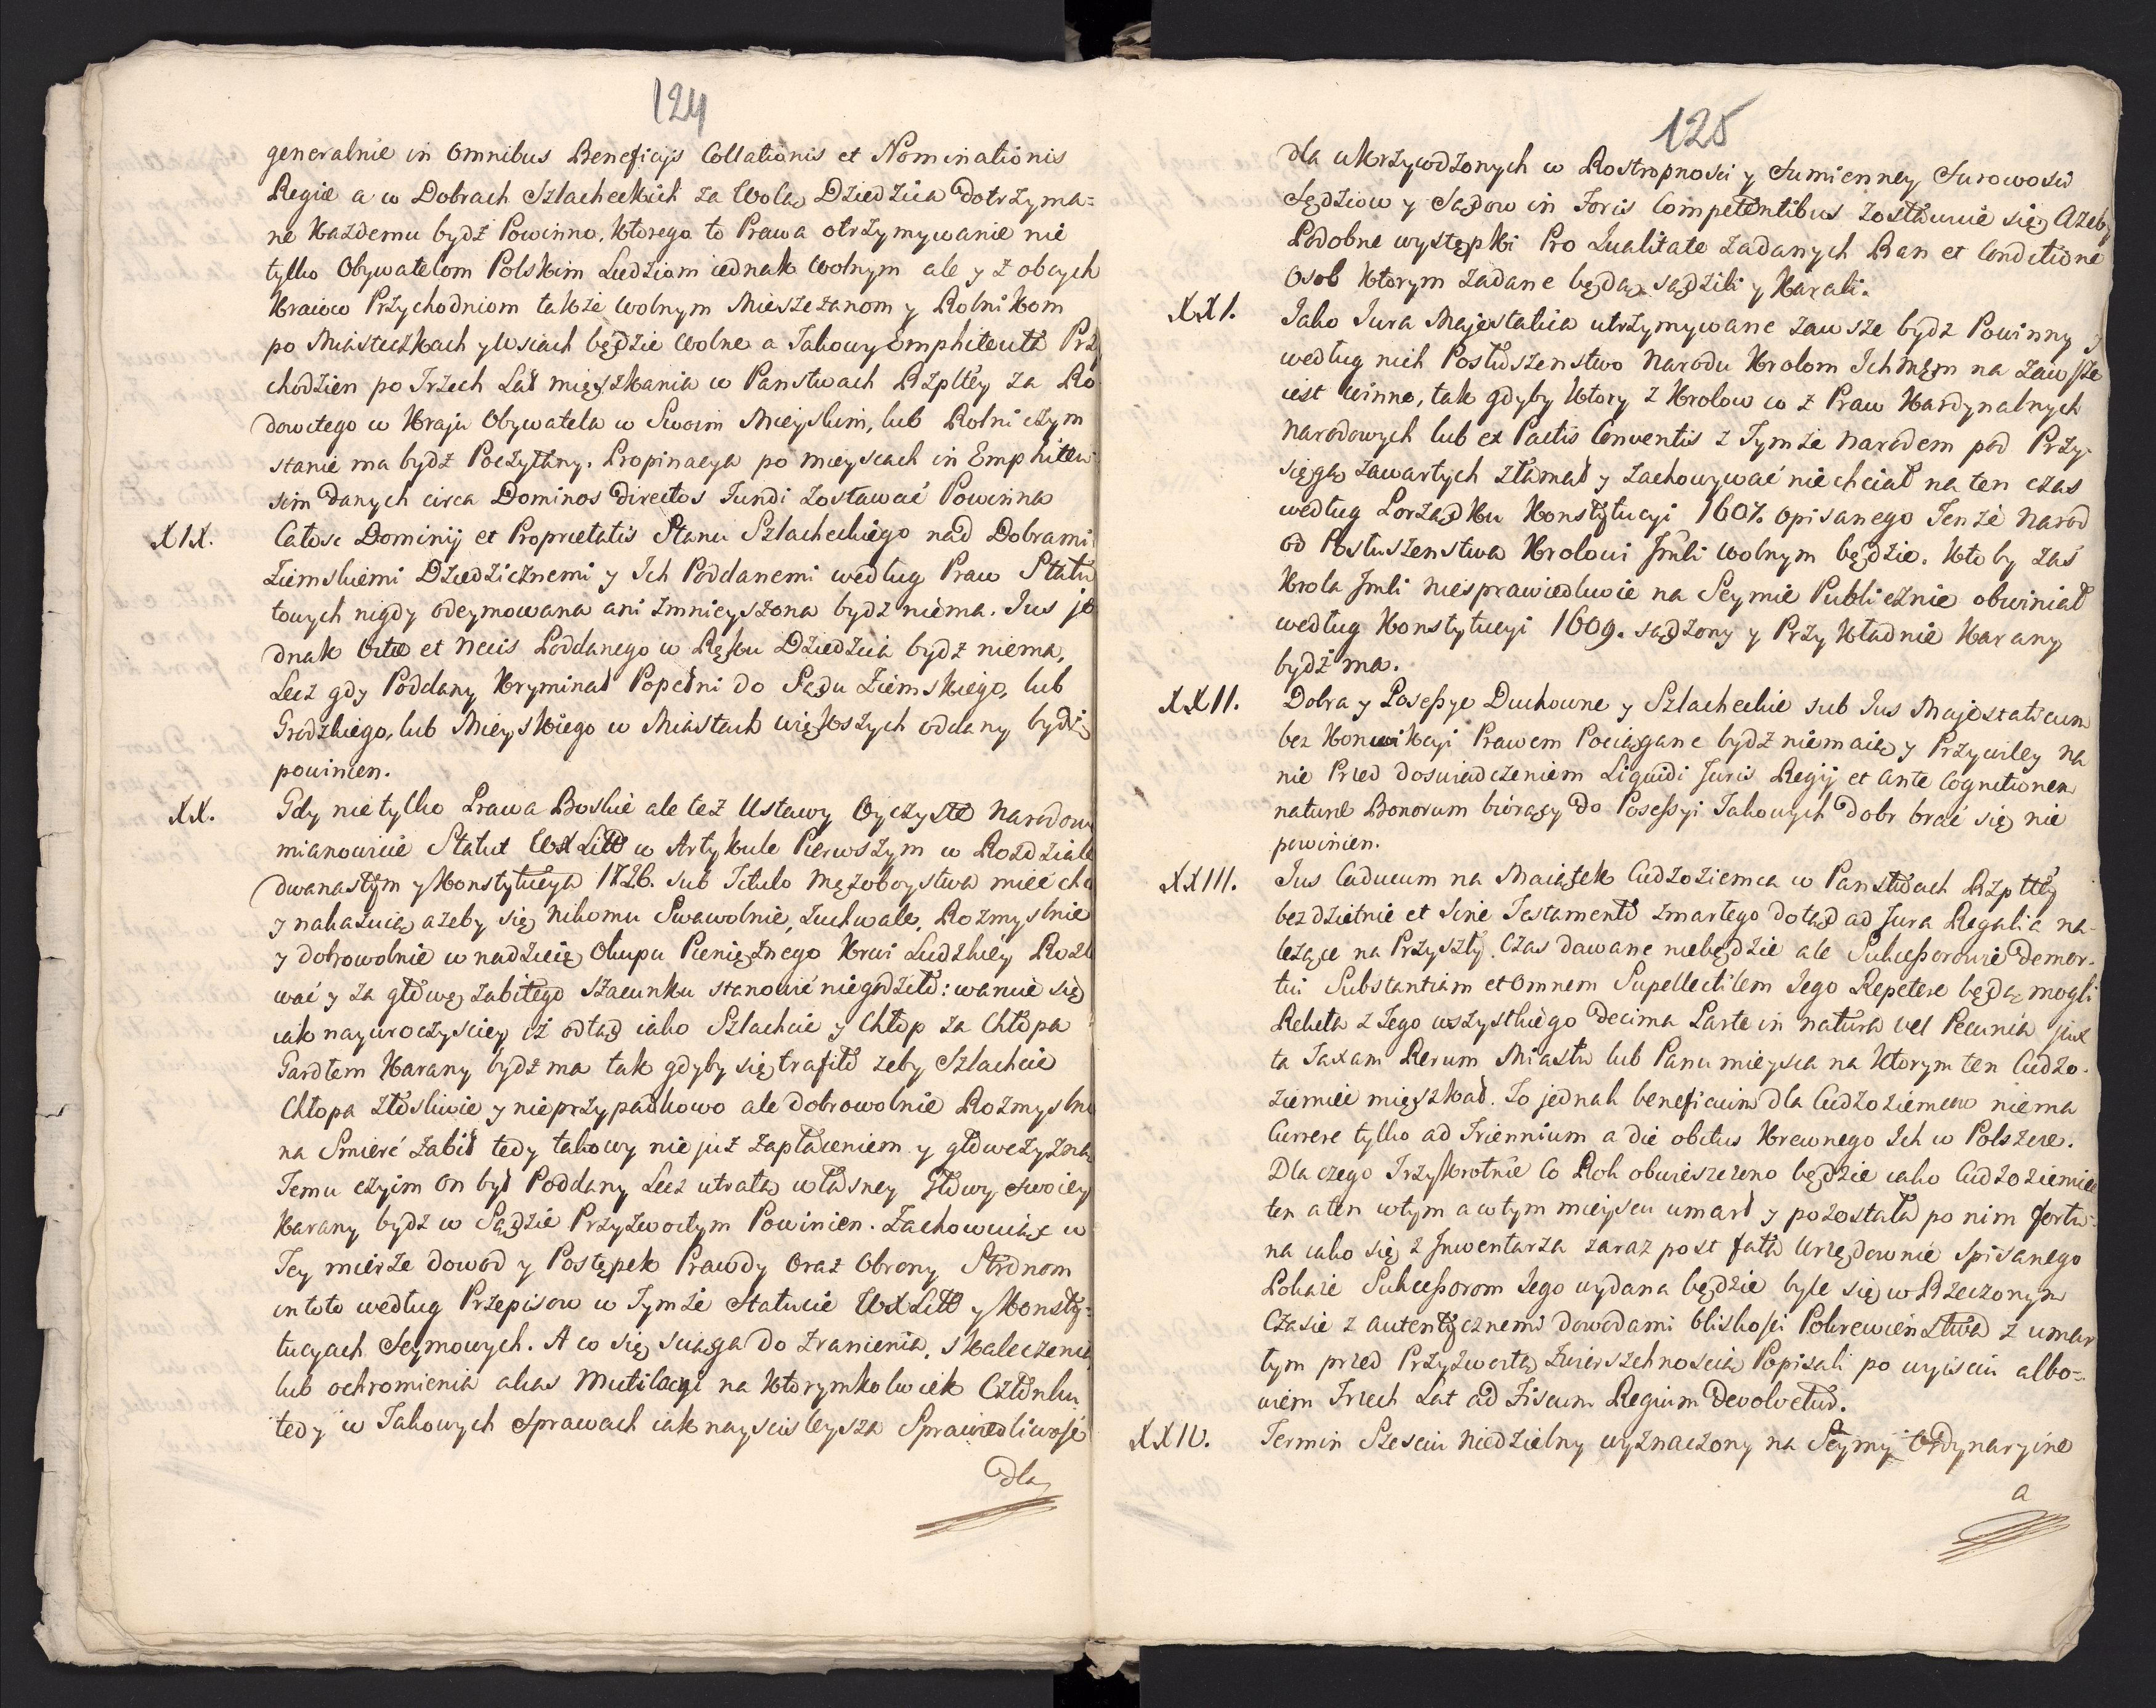 124
generalnie in Omnibus Beneficijs Collationis et Nominationis
Regiæ a w Dobrach Szlacheckich za Wolą Dziedzica dotrzyma=
ne Każdemu bydź Powinno, Ktorego to Prawa otrzymywanie nie
tylko Obywatelom Polskim Ludziom iednak Wolnym ale y z obcych
Kraiow Przychodniom także Wolnym Mieszczanom y Rolnikom
po Miasteczkach y Wsiach będzie Wolne a Takowy Emphiteuta Przy
chodzien po Trzech Lat mięszkania w Panstwach Rzpltey za Ro
dowitego w Kraju Obywatela w Swoim Mieyskim, lub Rolniczym
stanie ma bydź Poczytany. Propinacya po mieyscach in Emphiteu
sim danych circa Dominos directos Fundi zostawać Powinna
XIX. Całość Dominij et Proprietatis Stanu Szlacheckiego nad Dobrami
Ziemskiemi Dziedzicznemi y Ich Poddanemi według Praw Statu
towych nigdy odeymowana ani zmnieyszona bydź niema. Jus je
dnak Vitæ et Necis Poddanego w Ręku Dziedzica bydź niema,
Lecz gdy Poddany Kryminał Popełni do Sądu Ziemskiego, lub
Grodzkiego, lub Mieyskiego w Miastach większych oddany bydź
powinien.
XX. Gdy nie tylko Prawa Boskie ale też Ustawy Oyczyste Narodowe
mianowicie Statut WXLitt w Artykule Pierwszym w Rozdziale
dwanastym y Konstytucya 1726. sub Titulo Mężoboystwa mieć chc
y nakazuią ażeby się Nikomu Swawolnie, Zuchwale, Rozmyslnie
y dobrowolnie w nadzieię Okupu Pieniężnego Krwi Ludzkiey Rozle
wać y za głowę zabitego szacunku stanowić niegodziło: waruie się
iak nayuroczyściey iż odtąd iako Szlachcic y Chłop za Chłopa
Gardłem Karany bydź ma tak gdyby się trafiło żeby Szlachcic
Chłopa złośliwie y nieprzypadkowo ale dobrowolnie Rozmyslnie
na Smierć zabił tedy takowy nie już zapłaceniem y głowczyzną
Temu czyim On był Poddany Lecz utratą własney Głowy swoiey
Karany bydz w Sądzie Przyzwoitym Powinien. Zachowuiąc w
Tey mierze dowod y Postępek Prawdy Oraz Obrony Stronom
in toto według Przepisow w Tymże Statucie WXLitt y Konsty=
tucyach Seymowych. A co się sciąga do zranienia, skaleczenia
lub ochromienia alias Mutilacyi na Ktorymkolwiek Członku
tedy w Takowych Sprawach iak nayscisleysza Sprawiedliwość
dla
125
dla ukrzywdzonych w Rostropności y Sumienney Surowości
Sędziow y Sądow in Foris Competentibus zostawuie się, Ażeby
Podobne występki Pro Qualitate zadanych Ran et Conditione
Osob Ktorym zadane będą, sądzili y Karali.
XXI. Jako Jura Majestatica utrzymywane zawsze bydź Powinny y
według nich Posłuszenstwo Narodu Krolom Ichmcm na zawsze
iest winne, tak gdyby Ktory z Krolow co z Praw Kardynalnych
Narodowych lub ex Pactis Conventis z Tymże Narodem pod Przy
sięgą zawartych złamał y zachowywać nie chciał na ten czas
według Porządku Konstytucyi 1607. opisanego Tenże Narod
od Posłuszenstwa Krolowi Jmci Wolnym będzie. Kto by zaś
Krola Jmci niesprawiedliwie na Seymie Publicznie obwiniał
według Konstytucyi 1609. sądzony y Przykładnie Karany
bydź ma.
XXII. Dobra y Posessye Duchowne y Szlacheckie sub Jus Majestaticum
bez Konwikcyi Prawem Pociągane bydź niemaią y Przywiley na
nie Przed doswiadczeniem Liquidi Juris Regij et Ante Cognitionem
naturæ Bonorum biorący do Posessyi Takowych Dobr brać się nie
powinien.
XXIII. Jus Caducum na Maiątek Cudzoziemca w Panstwach Rzpttey
bezdzietnie et Sine Testamento zmarłego dotąd ad Jura Regalia na-
leżące na Przyszły Czas dawane niebędzie ale Sukcessorowie Demor-
tui Substantiam et Omnem Supellectilem Jego Repetere będą mogli
Relicta z Jego wszystkiego Decima Parte in natura vel Pecunia jux
ta Taxam Rerum Miastu lub Panu mieysca na Ktorym ten Cudzo-
ziemiec mięszkał. To jednak beneficium dla Cudzoziemcow niema
Currere tylko ad Triennium a die obitus Krewnego Ich w Polszcze.
Dla czego Trzykrotnie Co Rok obwieszczono będzie iako Cudzoziemiec
ten a ten w tym a w tym mieyscu umarł y pozostała po nim fortu-
na iako się z Jnwentarza zaraz post fata Urzędownie spisanego
Pokaże Sukcessorom Jego wydana będzie byle się w Rzeczonym
Czasie z autentycznemi dowodami bliskości Pokrewienstwa z umar
łym przed Przyzwoitą Zwierzchnoscią Popisali po wyisciu albo=
wiem Trzech Lat ad Fiscum Regium Devolvetur.
XXIV. Termin Szesciu Niedzielny wyznaczony na Seymy Ordynaryine
a